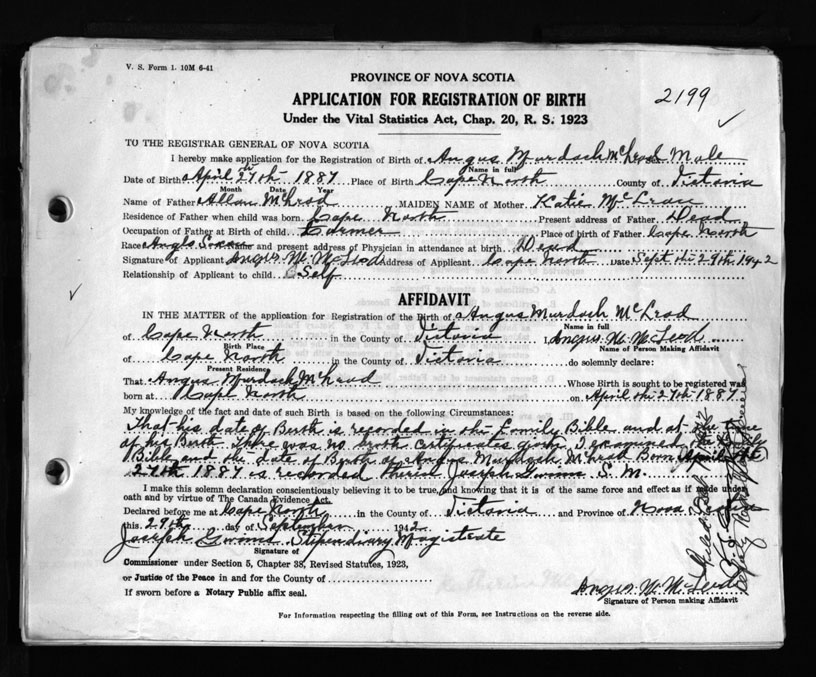 V. S. Form 1. 10M 6-41
PROVINCE OF NOVA SCOTIA
APPLICATION FOR REGISTRATION OF BIRTH
2199
Under the Vital Statistics Act, Chap. 20, R. S. 1923
TO THE REGISTRAR GENERAL OF NOVA SCOTIA
I hereby make application for the Registration of Birth of Angus Murdoch McLeod Male
Name in full
Date of Birth April 27th 1887 Place of Birth Cape North County of Victoria
Month Date Year
Name of Father Allan McLeod MAIDEN NAME of Mother Katie McLean
Residence of Father when child was born Cape North Present address of Father Dead
Occupation of Father at Birth of child Farmer Place of birth of Father Cape North
Race Anglo and present address of Physician in attendance at birth Dead
Signature of Applicant Angus M. McLeod Address of Applicant Cape North Date Sept the 29th 1942
Relationship of Applicant to child Self
AFFIDAVIT
IN THE MATTER of the application for Registration of the Birth of Angus Murdoch McLeod
Name in full
of Cape North in the County of Victoria I, Angus M. McLeod
Birth Place Name of Person Making Affidavit
of Cape North in the County of Victoria do solemnly declare:
Present Residency
That Angus Murdoch McLeod Whose Birth is sought to be registered was
born at Cape North on April the 27th 1887
My knowledge of the fact and date of such Birth is based on the following Circumstances:
That his date of Berth is recorded in the Family Bible and at the time
of his Berth there was no berth certificates I examined the
Bible and the date of Berth of Angus Murdoch McLeod Born April the
27th 1887 is recorded therein Joseph Gwinn S. M.
I make this solemn declaration conscientiously believing it to be true, and knowing that it is of the same force and effect as if made under
oath and by virtue of The Canada Evidence Act.
Declared before me at Cape North in the County of Victoria and Province of Nova Scotia
this 29th day of September 1942
Joseph Gwinn Stipendiary Magistrate
Signature of
Commissioner under Section 5, Chapter 38, Revised Statutes, 1923,
or Justice of the Peace in and for the County of
If sworn before a Notary Public affix seal.
Angus M. McLeod
Signature of Person making Affidavit
For Information respecting the filling out of this Form, see Instructions on the reverse side.